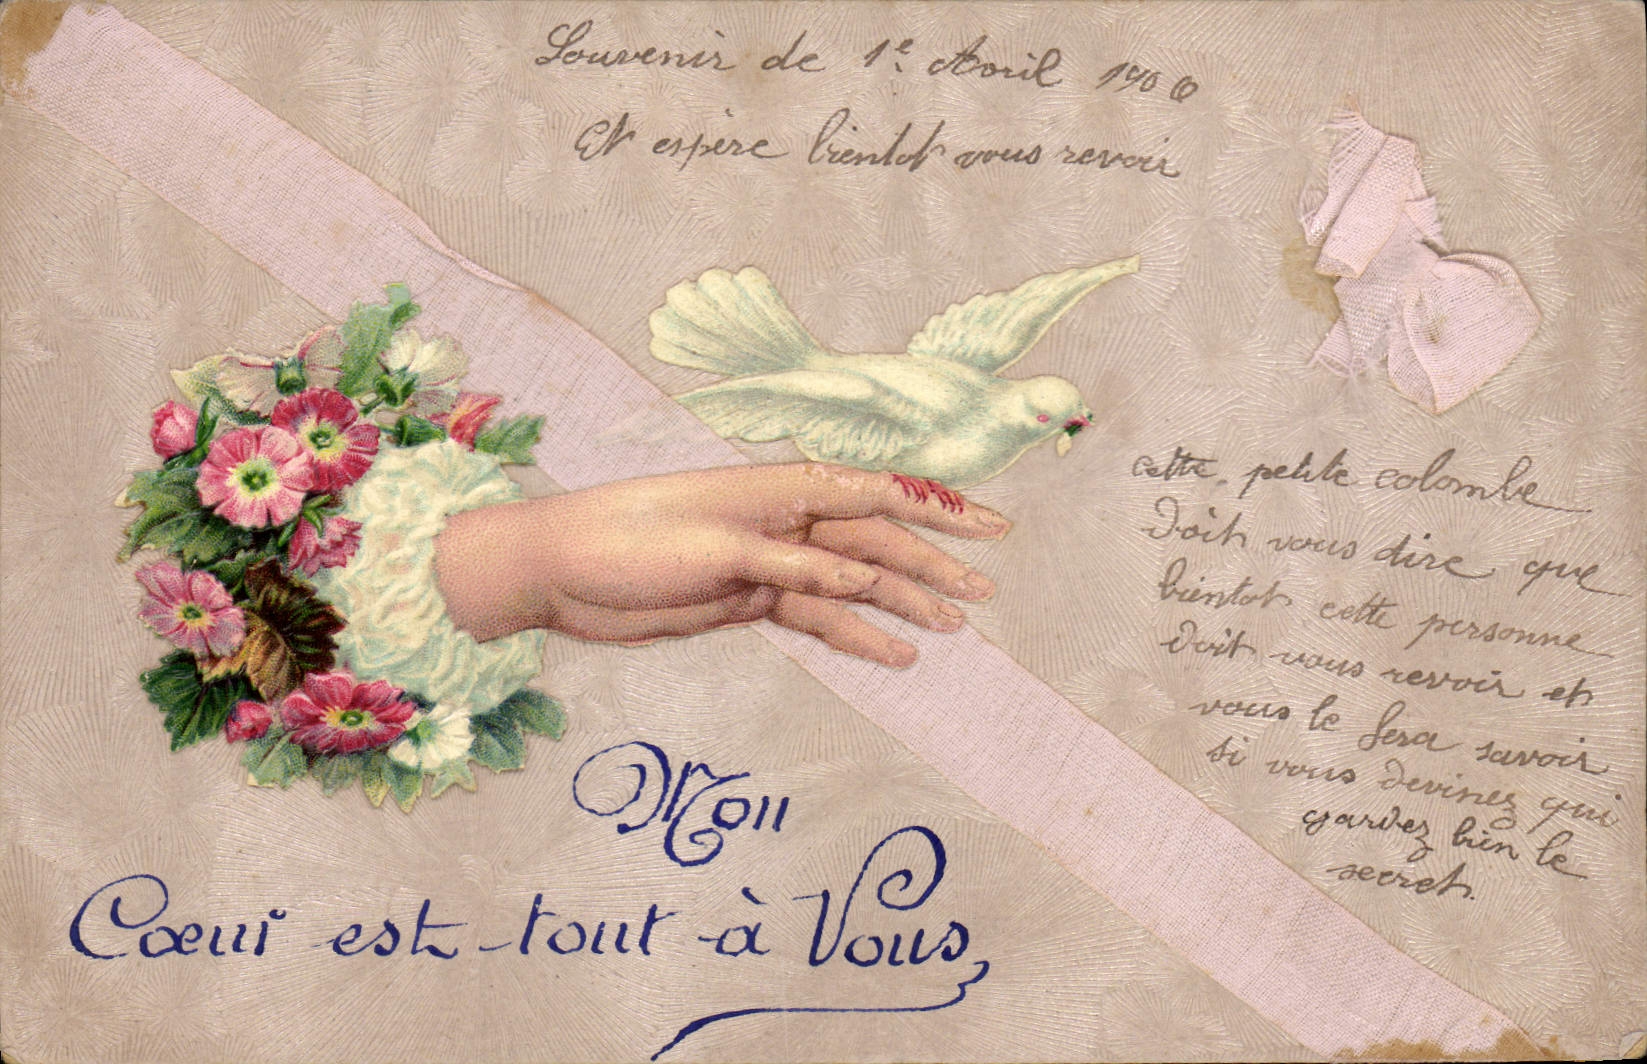 Souvenir de 1e Avril 1906
Et espère bientot vous revoir
cette petite colombe
Doit vous dire que
bientot cette personne
doit vous revoir et
vous le fera savoir
si vous devinez qui
gardez bien le
secret.
Mon
Cœur est tout à Vous